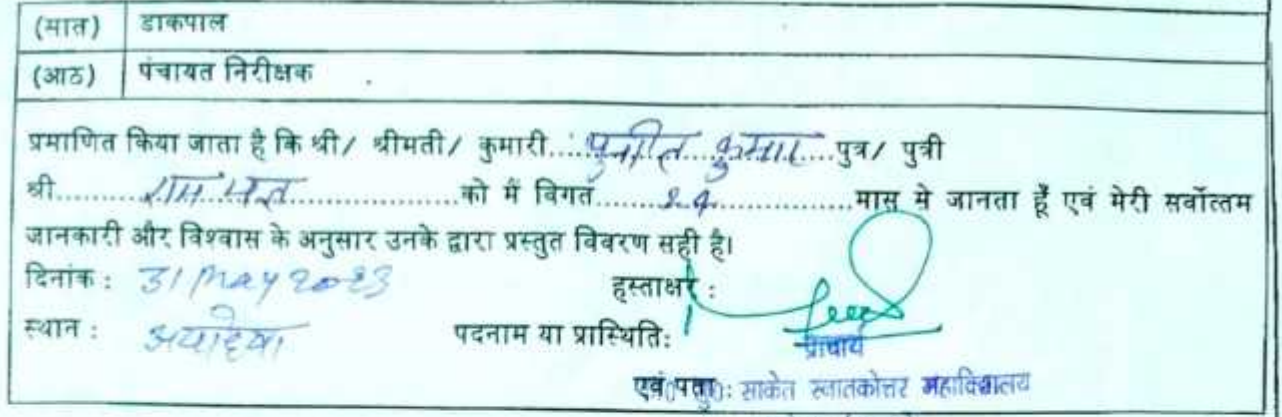 (सात) डाकपाल
(आठ) पंचायत निरीक्षक
प्रमाणित किया जाता है कि श्री/ श्रीमती/ कुमारी.....पुनीत कुमार.....पुत्र/ पुत्री
श्री.........राम.....................को मैं विगत......................मास से जानता हूँ एवं मेरी सर्वोत्तम
जानकारी और विश्वास के अनुसार उनके द्वारा प्रस्तुत विवरण सही है।
दिनांक : 31 May 2023 हस्ताक्षर :
स्थान : अयोध्या पदनाम या प्रास्थिति: प्राचार्य
एवं पता : साकेत स्नातकोत्तर महाविद्यालय